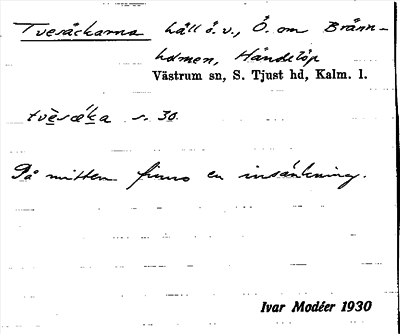 Tvesäckarna håll ö.v., Ö. om Bränn-
holmen, Händelöp
Västrum sn, S. Tjust hd, Kalm. l.
tvèsæka s. 30.
På mitten finns en insänkning.
Ivar Modéer 1930